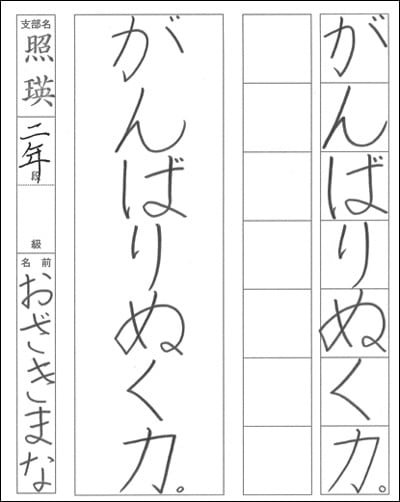 がんばりぬく力。
がんばりぬく力。
支部名
照瑛
二年
段
級
名前
おざきまな